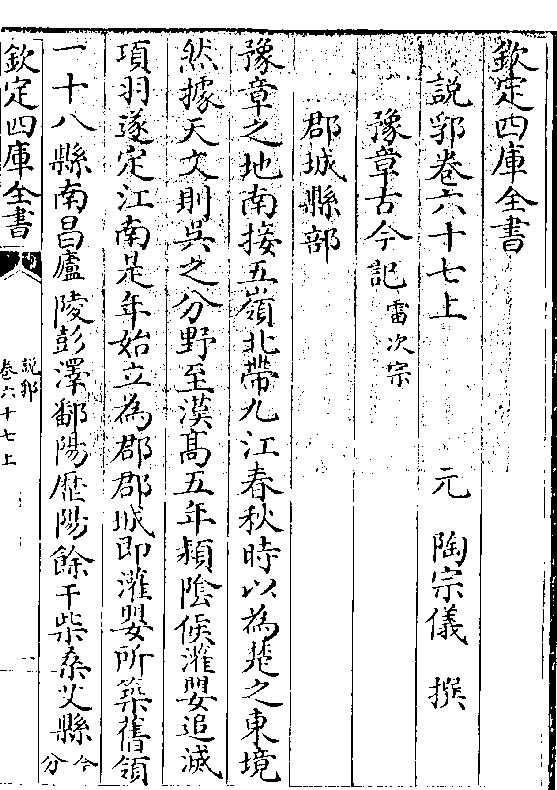 欽定四庫全書
說郛卷六十七上　元　陶宗儀　撰
豫章古今記 雷次宗
郡城縣部
豫章之地南接五嶺北帶九江春秋時以為楚之東境
然據天文則吳之分野至漢髙五年頴陰侯灌嬰追滅
項羽遂定江南是年始立為郡郡城即灌嬰所築舊領
一十八縣南昌廬陵彭澤鄱陽歷陽餘干柴桑艾縣 今
分
欽定四庫全書
說郛
卷六十七上
一